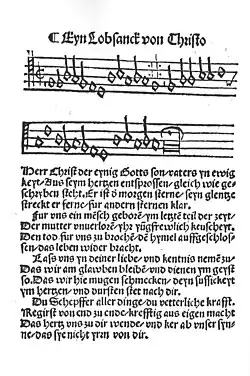 ¶ Eyn Lobsanck von Christo
Herr Christ der eynig Gotts son / vaters yn ewig
keyt / Aus seym hertzen entsprossen / gleich wie ge-
schryben steht. Er ist ð morgen sterne / seyn glentze
streckt er ferne / fur andern sternen klar.
Fur uns ein mēsch geborē / ym letztē teil der zeyt /
Der mutter unuerlorē / yhr yūgfrewlich keuscheyt.
Den tod fur uns zu brochē / dē hymel auffgeschlos-
sen / das leben wider bracht.
Lass uns yn deiner liebe / und kentnis nemē zu /
Das wir am glawben bleibē / und dienen ym geyst
so. Das wir hie mugen schmecken / deyn sussickeyt
ym hertzen / und dursten stet nach dir.
Du Schepffer aller dinge / du vetterliche krafft.
Regirst von end zu ende / krefftig aus eigen macht
Das hertz uns zu dir wende / und ker ab unser syn-
ne / das sye nicht yrrn von dir.